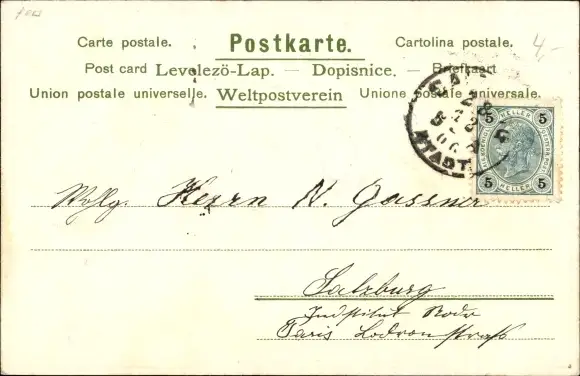 Carte postale. Postkarte. Cartolina postale.
Post card Levelező-Lap. — Dopisnice. — Briefkaart
Union postale universelle. Weltpostverein Unione postale universale.
4,-
STADT
5 HELLER 5
5 HELLER 5
Wolg. Herrn N. Gassner
Salzburg
Institut
Paris Lodronstraße